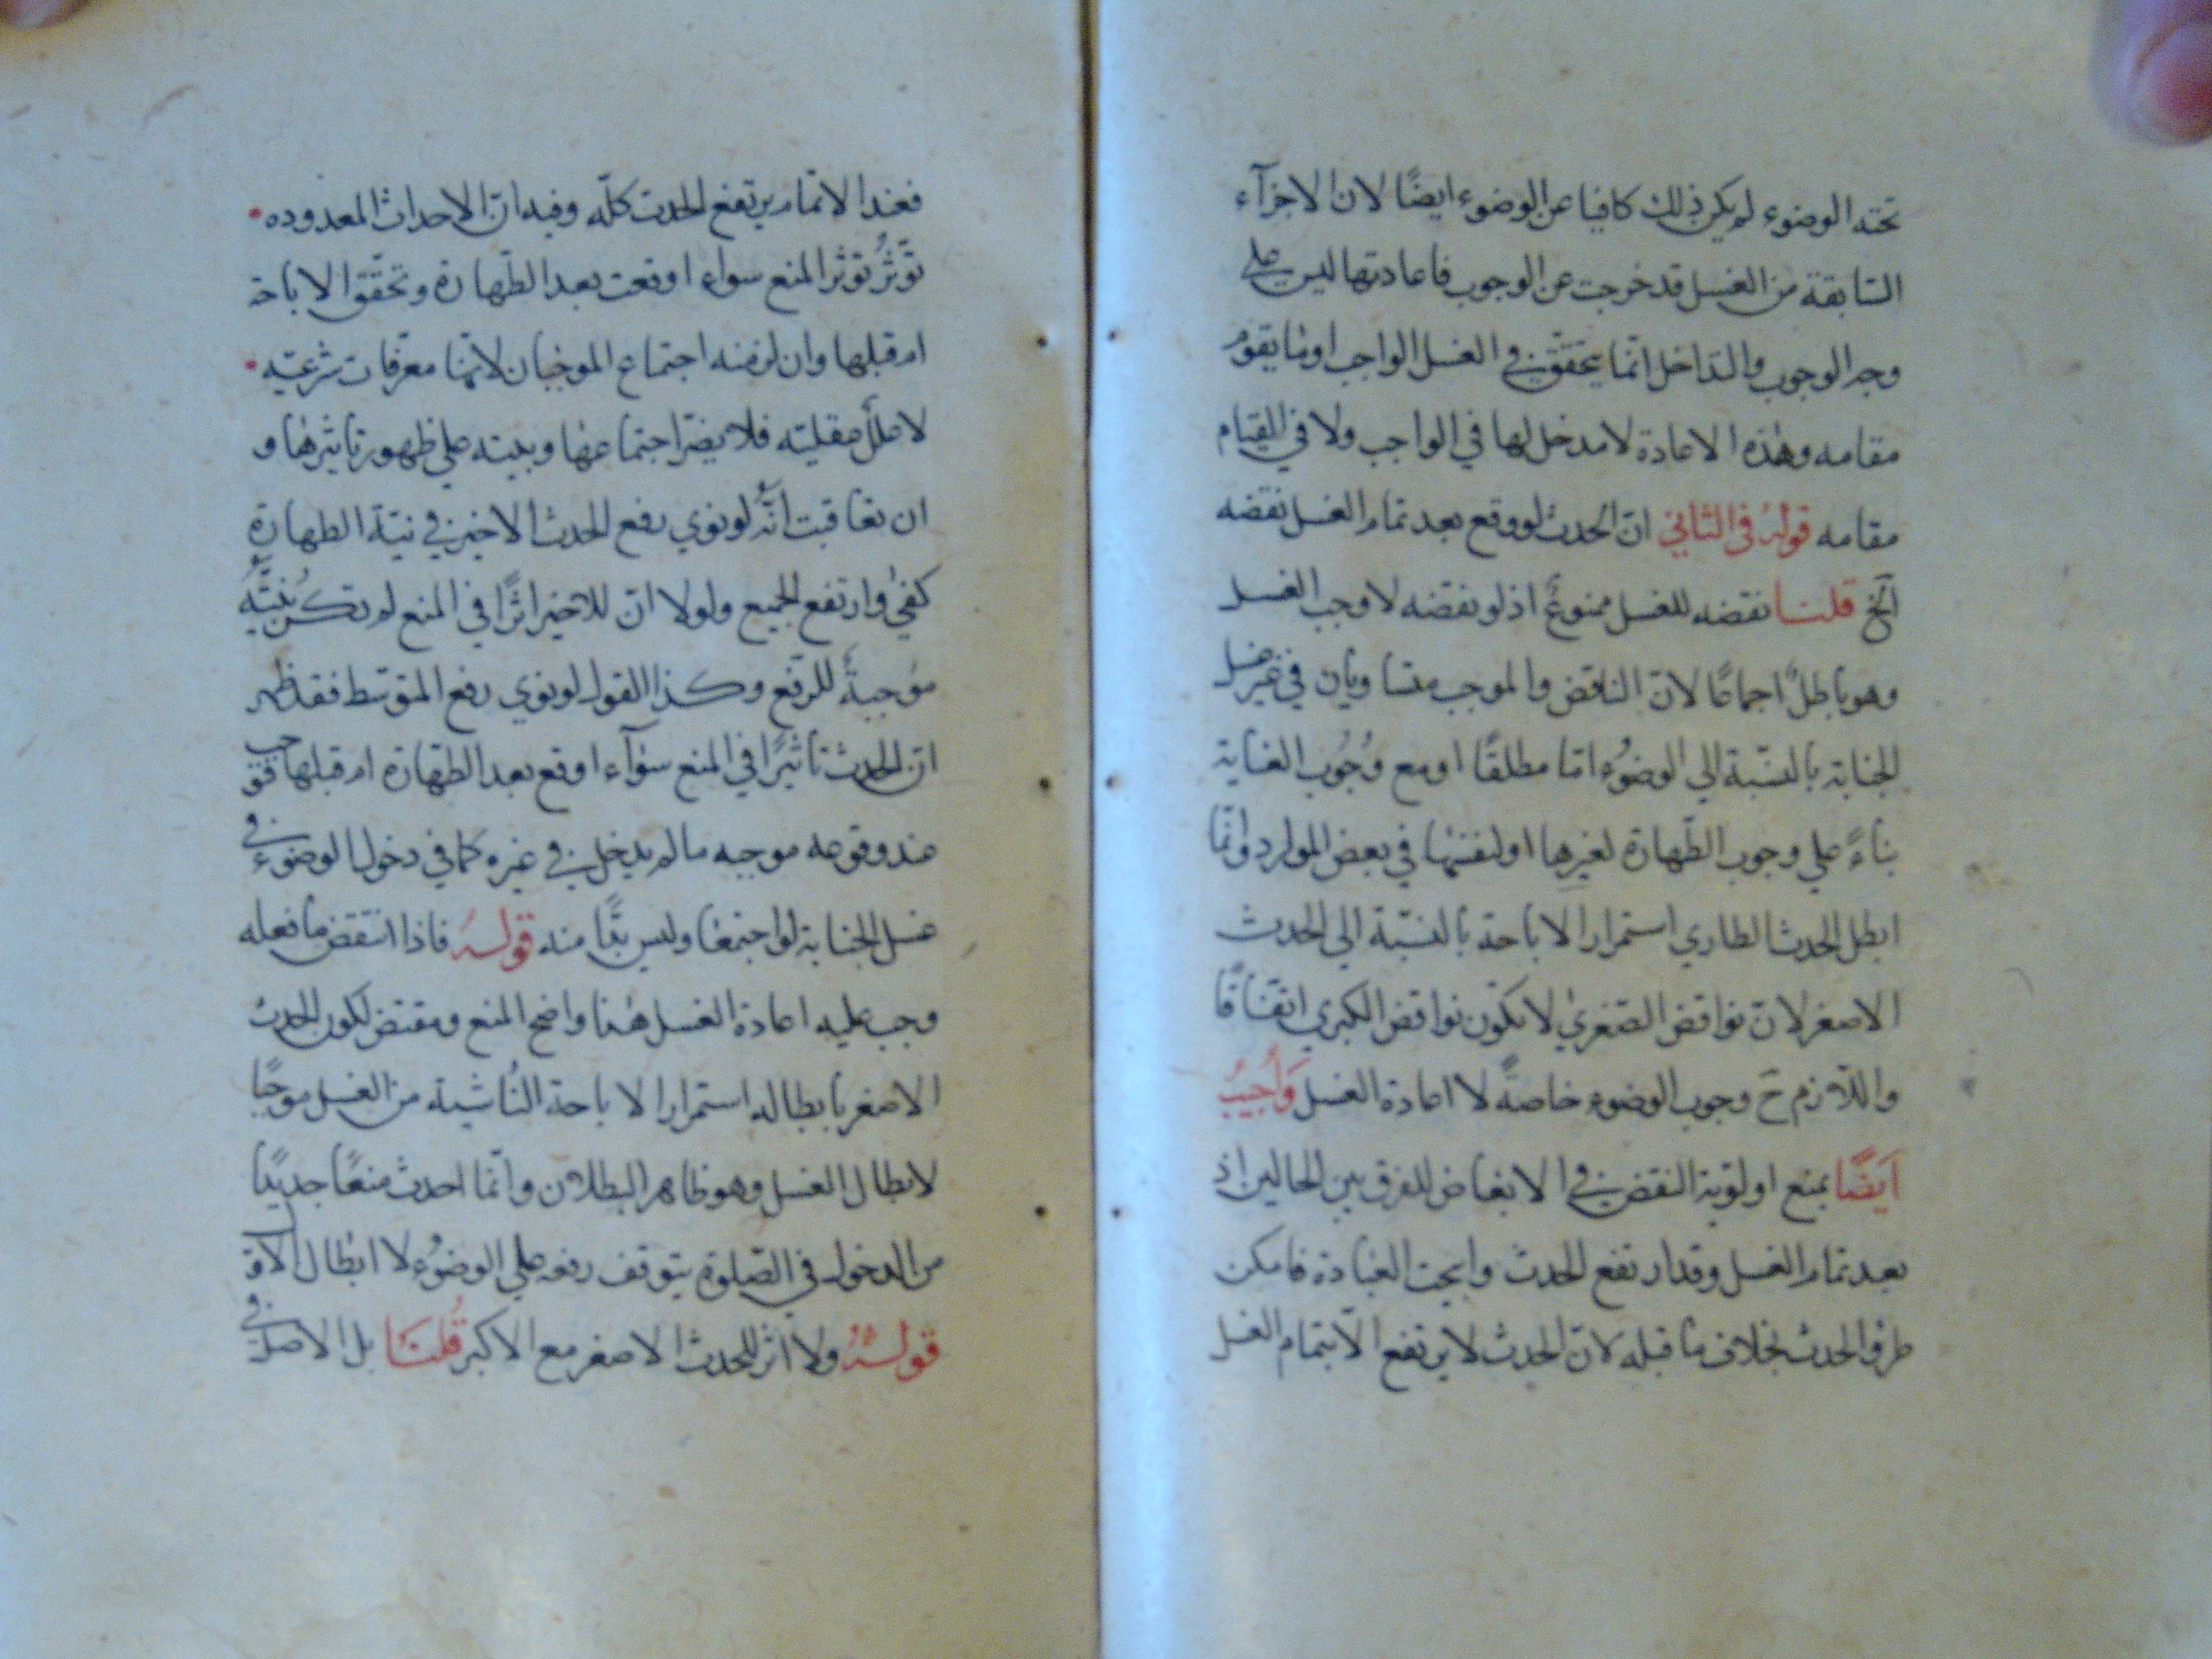 تحته الوضوء لم يكن ذلك كافيا عن الوضوء ايضًا لان الاجزآء
السّابقة من الغسل قد خرجت عن الوجوب فاعادتها ليس علي
وجه الوجوب والتداخل انّما يتحقّق في الغسل الواجب او ما يقوم
مقامه وهذه الاعادة لا مدخل لها في الواجب ولا في القيام
مقامه قولهُ في الثاني انّ الحدث لو وقع بعد تمام الغسل نقضه
آلخ قلنا نقضه للغسل ممنوعٌ اذ لو نقضه لاوجب الغسل
وهو باطلٌ اجماعًا لانّ الناقض والموجب متساويان في غير غسل
الجنابة بالنسّبة الي الوضوُء امّا مطلقًا او مع وُجُوب الغاية
بناءً علي وجوب الطّهارة لغيرها او لنفسها في بعض الموارد وانّما
ابطل الحدث الطاري استمرار الاباحة بالنسّبة الي الحدث
الاصغر لانّ نواقض الصّغريٰ لا تكون نواقض الكبري اتّفاقًا
واللّازم حَ وجوب الوضوء خاصةً لا اعادة الغسل وَاُجيبُ
اَيضًا بمنع اولويّة النقض في الابعاض للفرق بين الحالين اذ
بعد تمام الغسل وقد ارتفع الحدث وابيحت العبادة فامكن
طروّ الحدث بخلاف ما قبله لانّ الحدث لا يرتفع الّا بتمام الغسل
فعند الاتمام يرتفع الحدث كلّه وفيه انّ الاحداث المعدوده
تؤثرُ تؤثر المنع سواء اوقعت بعد الطّهارة وتحقّق الاباحة
ام قبلها وان لزم منه اجتماع الموجبان لانّها معرّفات شرعيّه
لا عللٌ عقليّه فلا يضرّ اجتماعها وينبه علي ظهور تاثيرها و
ان تعاقبت انّهُ لو نوي رفع الحدث الاخير في نيّة الطهارة
كفيٰ وارتفع الجميع ولولا انّ للاخير اثرًا في المنع لم تكن نيّتهُ
موُجبةً للرّفع وكذا القول لو نوي رفع المتوسّط فقد ظهر
انّ للحدث تاثيرًا في المنع سوآء اوقع بعد الطّهارة ام قبلها فوجب
عند وقوعه موجبه ما لم يدخل في غيره كما في دخول الوضوء في
غسل الجنابة لو اجتمعا وليس بدًّا منه قولهُ فاذا انتقض ما فعله
وجب عليه اعادة الغسل هنا واضح المنع ومقتض لكون الحدث
الاصغر بابطاله استمرار الاباحة النّاشية من الغسل موجبًا
لابطال الغسل وهو ظاهر البطلان وانّما احدث منعًا جديدًا
من الدخول في الصّلوة يتوقف رفعه علي الوضوُء لا ابطال الاوّل
قولهُ ولا اثر للحدث الاصغر مع الاكبر قُلنَا بل الاصل في